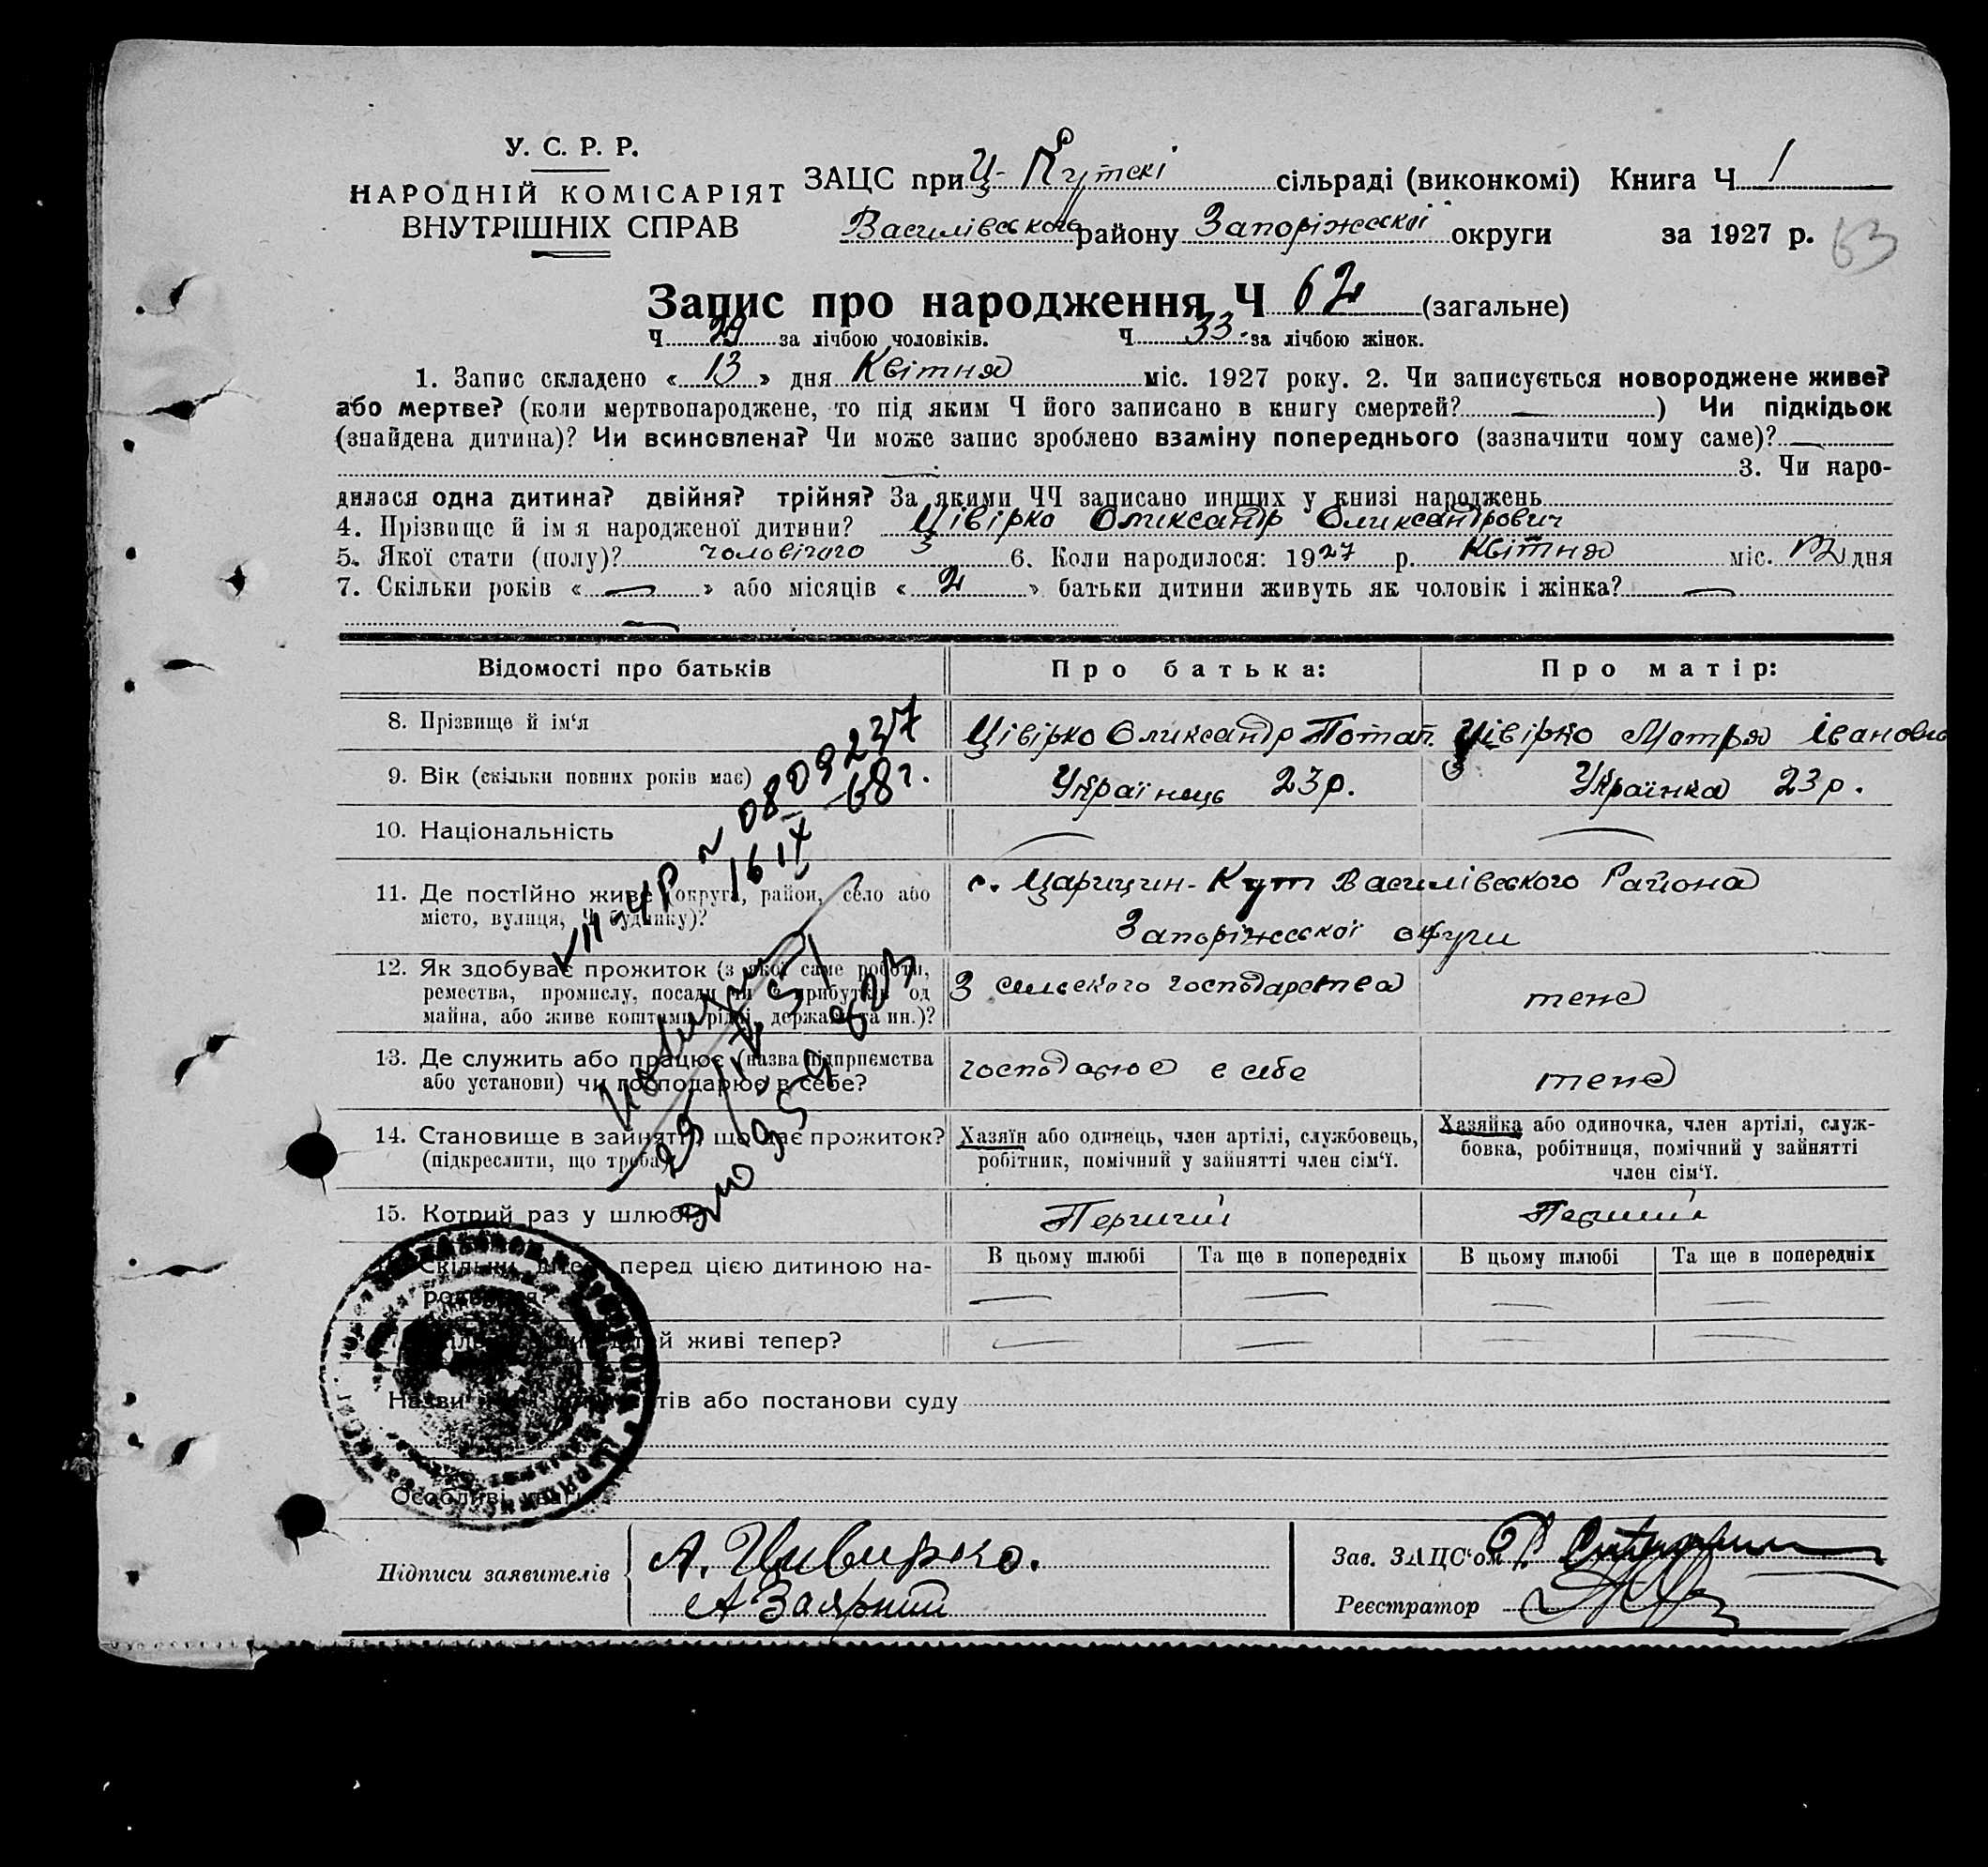 У. С. Р. Р.
НАРОДНІЙ КОМІСАРІЯТ
ВНУТРІШНІХ СПРАВ
ЗАЦС при Ц-Кутскі сільраді (виконкомі) Книга Ч 1
Василівського району Запоріжської округи за 1927 р. 63
Запис про народження Ч 62 (загальне)
Ч 29 за лічбою чоловіків. Ч 33 за лічбою жінок.
1. Запис складено « 13 » дня Квітня міс. 1927 року. 2. Чи записується новороджене живе?
або мертве? (коли мертвонароджене, то під яким Ч його записано в книгу смертей? — ) Чи підкідьок
(знайдена дитина)? Чи всиновлена? Чи може запис зроблено взаміну попереднього (зазначити чому саме)? —
— 3. Чи наро-
дилася одна дитина? двійня? трійня? За якими ЧЧ записано инших у книзі народжень
4. Прізвище й ім я народженої дитини? Цівірко Олександр Олександрович
5. Якої стати (полу)? чоловічого 6. Коли народилося: 1927 р. Квітня міс. 12 дня
7. Скільки років « — » або місяців « 2 » батьки дитини живуть як чоловік і жінка? —
—
Відомості про батьків Про батька: Про матір:
8. Прізвище й ім‘я Цівірко Олександр Потап. Цівірко Мотря Івановна
9. Вік (скільки повних років має) Українець 23 р. Українка 23 р.
10. Національність — —
11. Де постІйно живе (округа, район, село або
місто, вулиця, Ч будинку)?
с. Царицин-Кут Василівського Района
Запоріжської округи
12. Як здобуває прожиток (з якої саме роботи,
ремества, промислу, посади чи з прибутків од
майна, або живе коштами рідні, держави та ин.)?
З сельского господарства теж
13. Де служить або працює (назва підприємства
або установи) чи господарює в себе?
господарює в себе теж
14. Становище в зайнятті, що дає прожиток?
(підкреслити, що треба)
Хазяїн або одинець, член артілі, службовець,
робітник, помічний у зайнятті член сім‘ї.
Хазяйка або одиночка, член артілі, служ-
бовка, робітниця, помічний у зайнятті
член сім‘ї.
15. Котрий раз у шлюбі Перший Перший
Скільки дітей перед цією дитиною на-
родилося?
В цьому шлюбі Та ще в попередніх В цьому шлюбі Та ще в попередніх
— — — —
й живі тепер? — — — —
Назви тів або постанови суду
Особливі уваги
№ 0809237
16 IX – 68 г.
Підписи заявителів
А. Цивирко.
А Заярний
Зав. ЗАЦС‘ом
Реєстратор